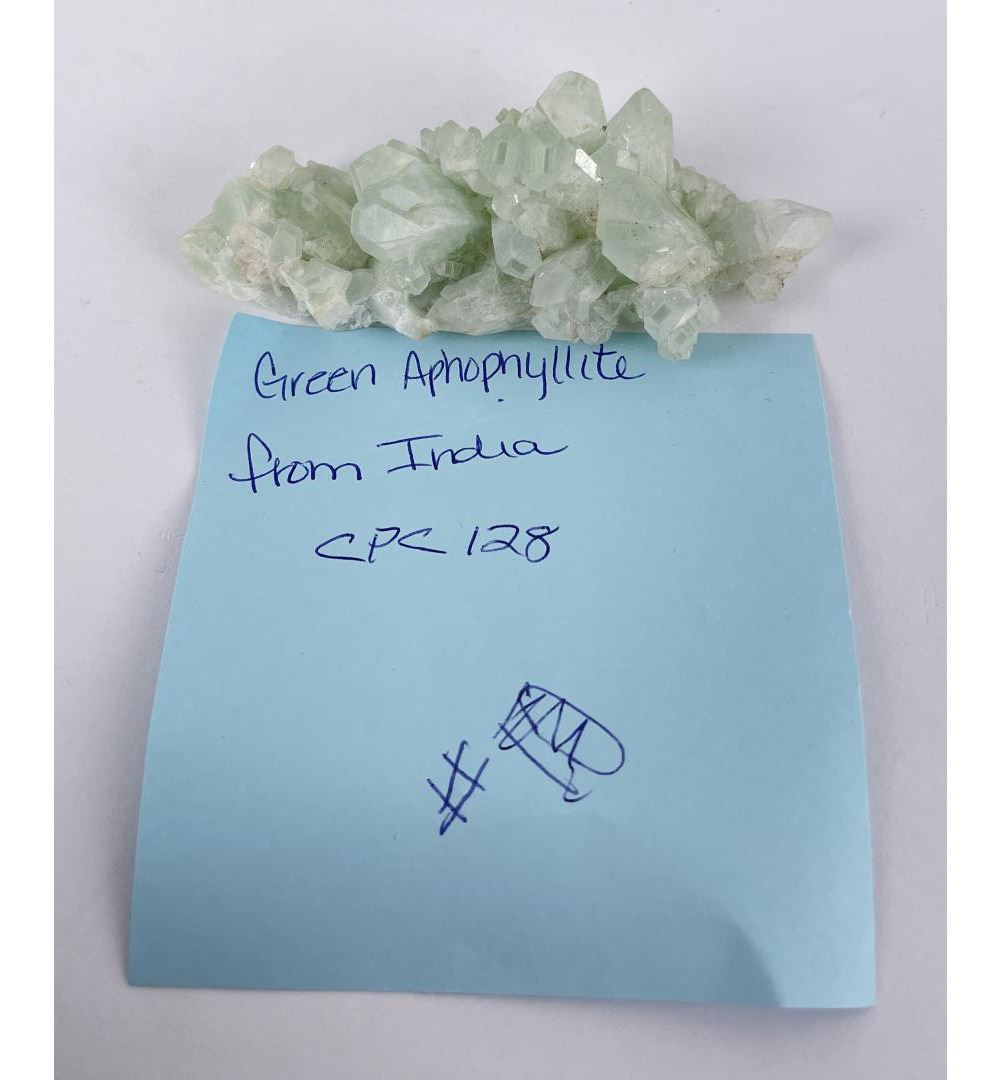 Green Aphophyllite
from India
CPC 128
#